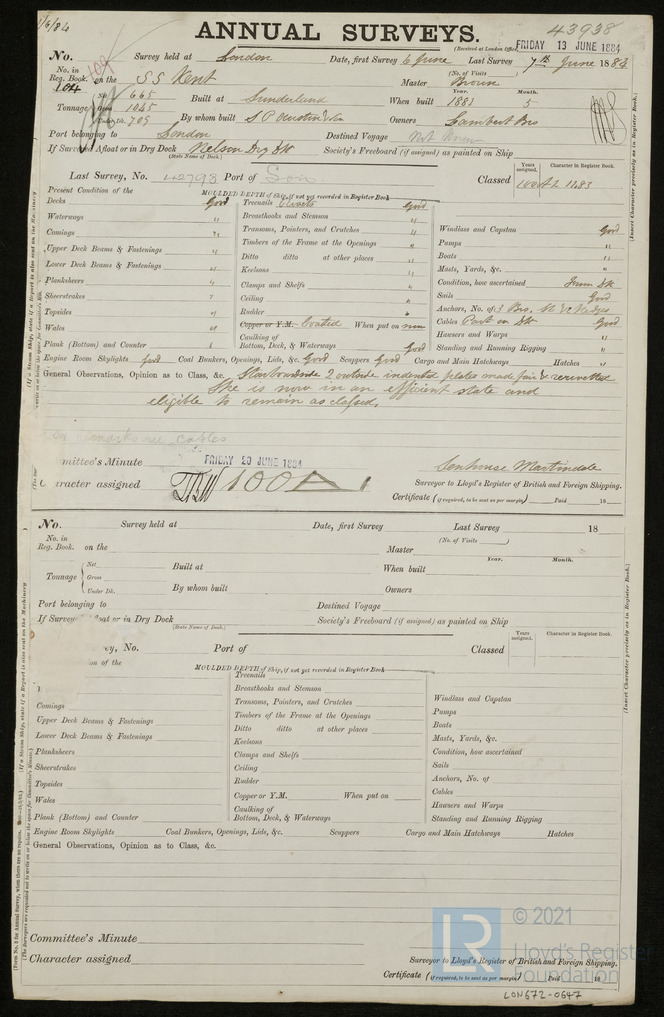 1/6/84
ANNUAL SURVEYS.
43938
(Received at London Office FRIDAY 13 JUNE 1884
No. Survey held at London Date, first Survey 6 June Last Survey 7th June 1884
No. in Reg. Book. 104 109 on the SS Kent (No. of Visits) Master Brown
Tonnage Net 665 Gross 1045 Under Dk. 709
Built at Sunderland When built Year. 1881 Month. 5
By whom built S P Austin & Son Owners Lambert Bro
Port belonging to London Destined Voyage Not known
If Surveyed Afloat or in Dry Dock Nelson Dry Dk Society's Freeboard (if assigned) as painted on Ship
(State Name of Dock.)
Last Survey, No. 42793 Port of Lon Classed Years assigned. 100 Character in Register Book. A1 11.83
Present Condition of the MOULDED DEPTH of Ship, if not yet recorded in Register Book
Decks Good
Waterways "
Comings "
Upper Deck Beams & Fastenings "
Lower Deck Beams & Fastenings "
Planksheers "
Sheerstrakes "
Topsides "
Wales "
Plank (Bottom) and Counter "
Treenails Rivets Good
Breasthooks and Stemson "
Transoms, Pointers, and Crutches "
Timbers of the Frame at the Openings "
Ditto ditto at other places "
Keelsons "
Clamps and Shelfs "
Ceiling "
Rudder "
Copper or Y.M. Coated When put on now
Caulking of Bottom, Deck, & Waterways Good
Windlass and Capstan Good
Pumps "
Boats "
Masts, Yards, &c. "
Condition, how ascertained From Dk
Sails Good
Anchors, No. of 3 Bro,
Cables Part on Dk Good
Hawsers and Warps "
Standing and Running Rigging "
Engine Room Skylights Good Coal Bunkers, Openings, Lids, &c. Good Scuppers Good Cargo and Main Hatchways Hatches "
General Observations, Opinion as to Class, &c. Starboard side 2 outside indented plates made fair & rerivetted
She is now in an efficient state and
eligible to remain as classed.
remarks re cables
mmittee's Minute FRIDAY 20 JUNE 1884 Senhouse Martindale
Surveyor to Lloyd's Register of British and Foreign Shipping.
Character assigned 100A1
Certificate (if required, to be sent as per margin) Paid 18
No. Survey held at Date, first Survey Last Survey 18
No. in Reg. Book. on the (No. of Visits ) Master
Tonnage Net Gross Under Dk.
Built at When built Year. Month.
By whom built Owners
Port belonging to Destined Voyage
If Survey afloat or in Dry Dock Society's Freeboard (if assigned) as painted on Ship
(State Name of Dock.)
vey, No. Port of Classed Years assigned. Character in Register Book.
on of the MOULDED DEPTH of Ship, if not yet recorded in Register Book
Comings
Upper Deck Beams & Fastenings
Lower Deck Beams & Fastenings
Planksheers
Sheerstrakes
Topsides
Wales
Plank (Bottom) and Counter
Treenails
Breasthooks and Stemson
Transoms, Pointers, and Crutches
Timbers of the Frame at the Openings
Ditto ditto at other places
Keelsons
Clamps and Shelfs
Ceiling
Rudder
Copper or Y.M. When put on
Caulking of Bottom, Deck, & Waterways
Windlass and Capstan
Pumps
Boats
Masts, Yards, &c.
Condition, how ascertained
Sails
Anchors, No. of
Cables
Hawsers and Warps
Standing and Running Rigging
Engine Room Skylights Coal Bunkers, Openings, Lids, &c. Scuppers Cargo and Main Hatchways Hatches
General Observations, Opinion as to Class, &c.
Committee's Minute
Character assigned
Surveyor to Lloyd's Register of British and Foreign Shipping.
Certificate (if required, to be sent as per margin) Paid 18
LR © 2021
Lloyd's Register
Foundation
LON672-0647
(Insert Character precisely as in Register Book.)
(Insert Character precisely as in Register Book.)
(If a Steam Ship, state if a Report is also sent on the Machinery
(If a Steam Ship, state if a Report is also sent on the Machinery